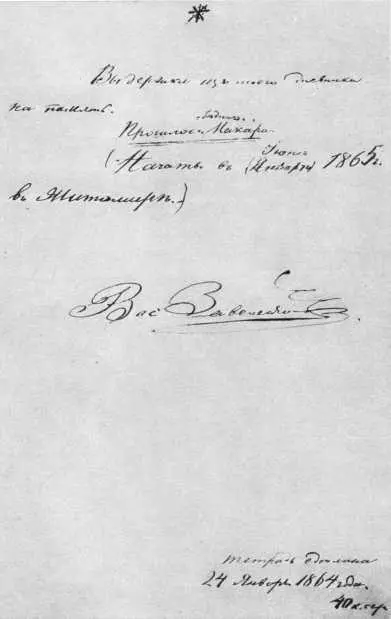 Выдержки изъ моего дневника
на память.
бѣднаго
Прошлое Макара.
Іюнѣ
(Начатъ въ (Январѣ) 1865 г.
въ Житомирѣ.)
Вас
Тетрадь сдѣлана
24 Января 1864 года.
40 к. сер.